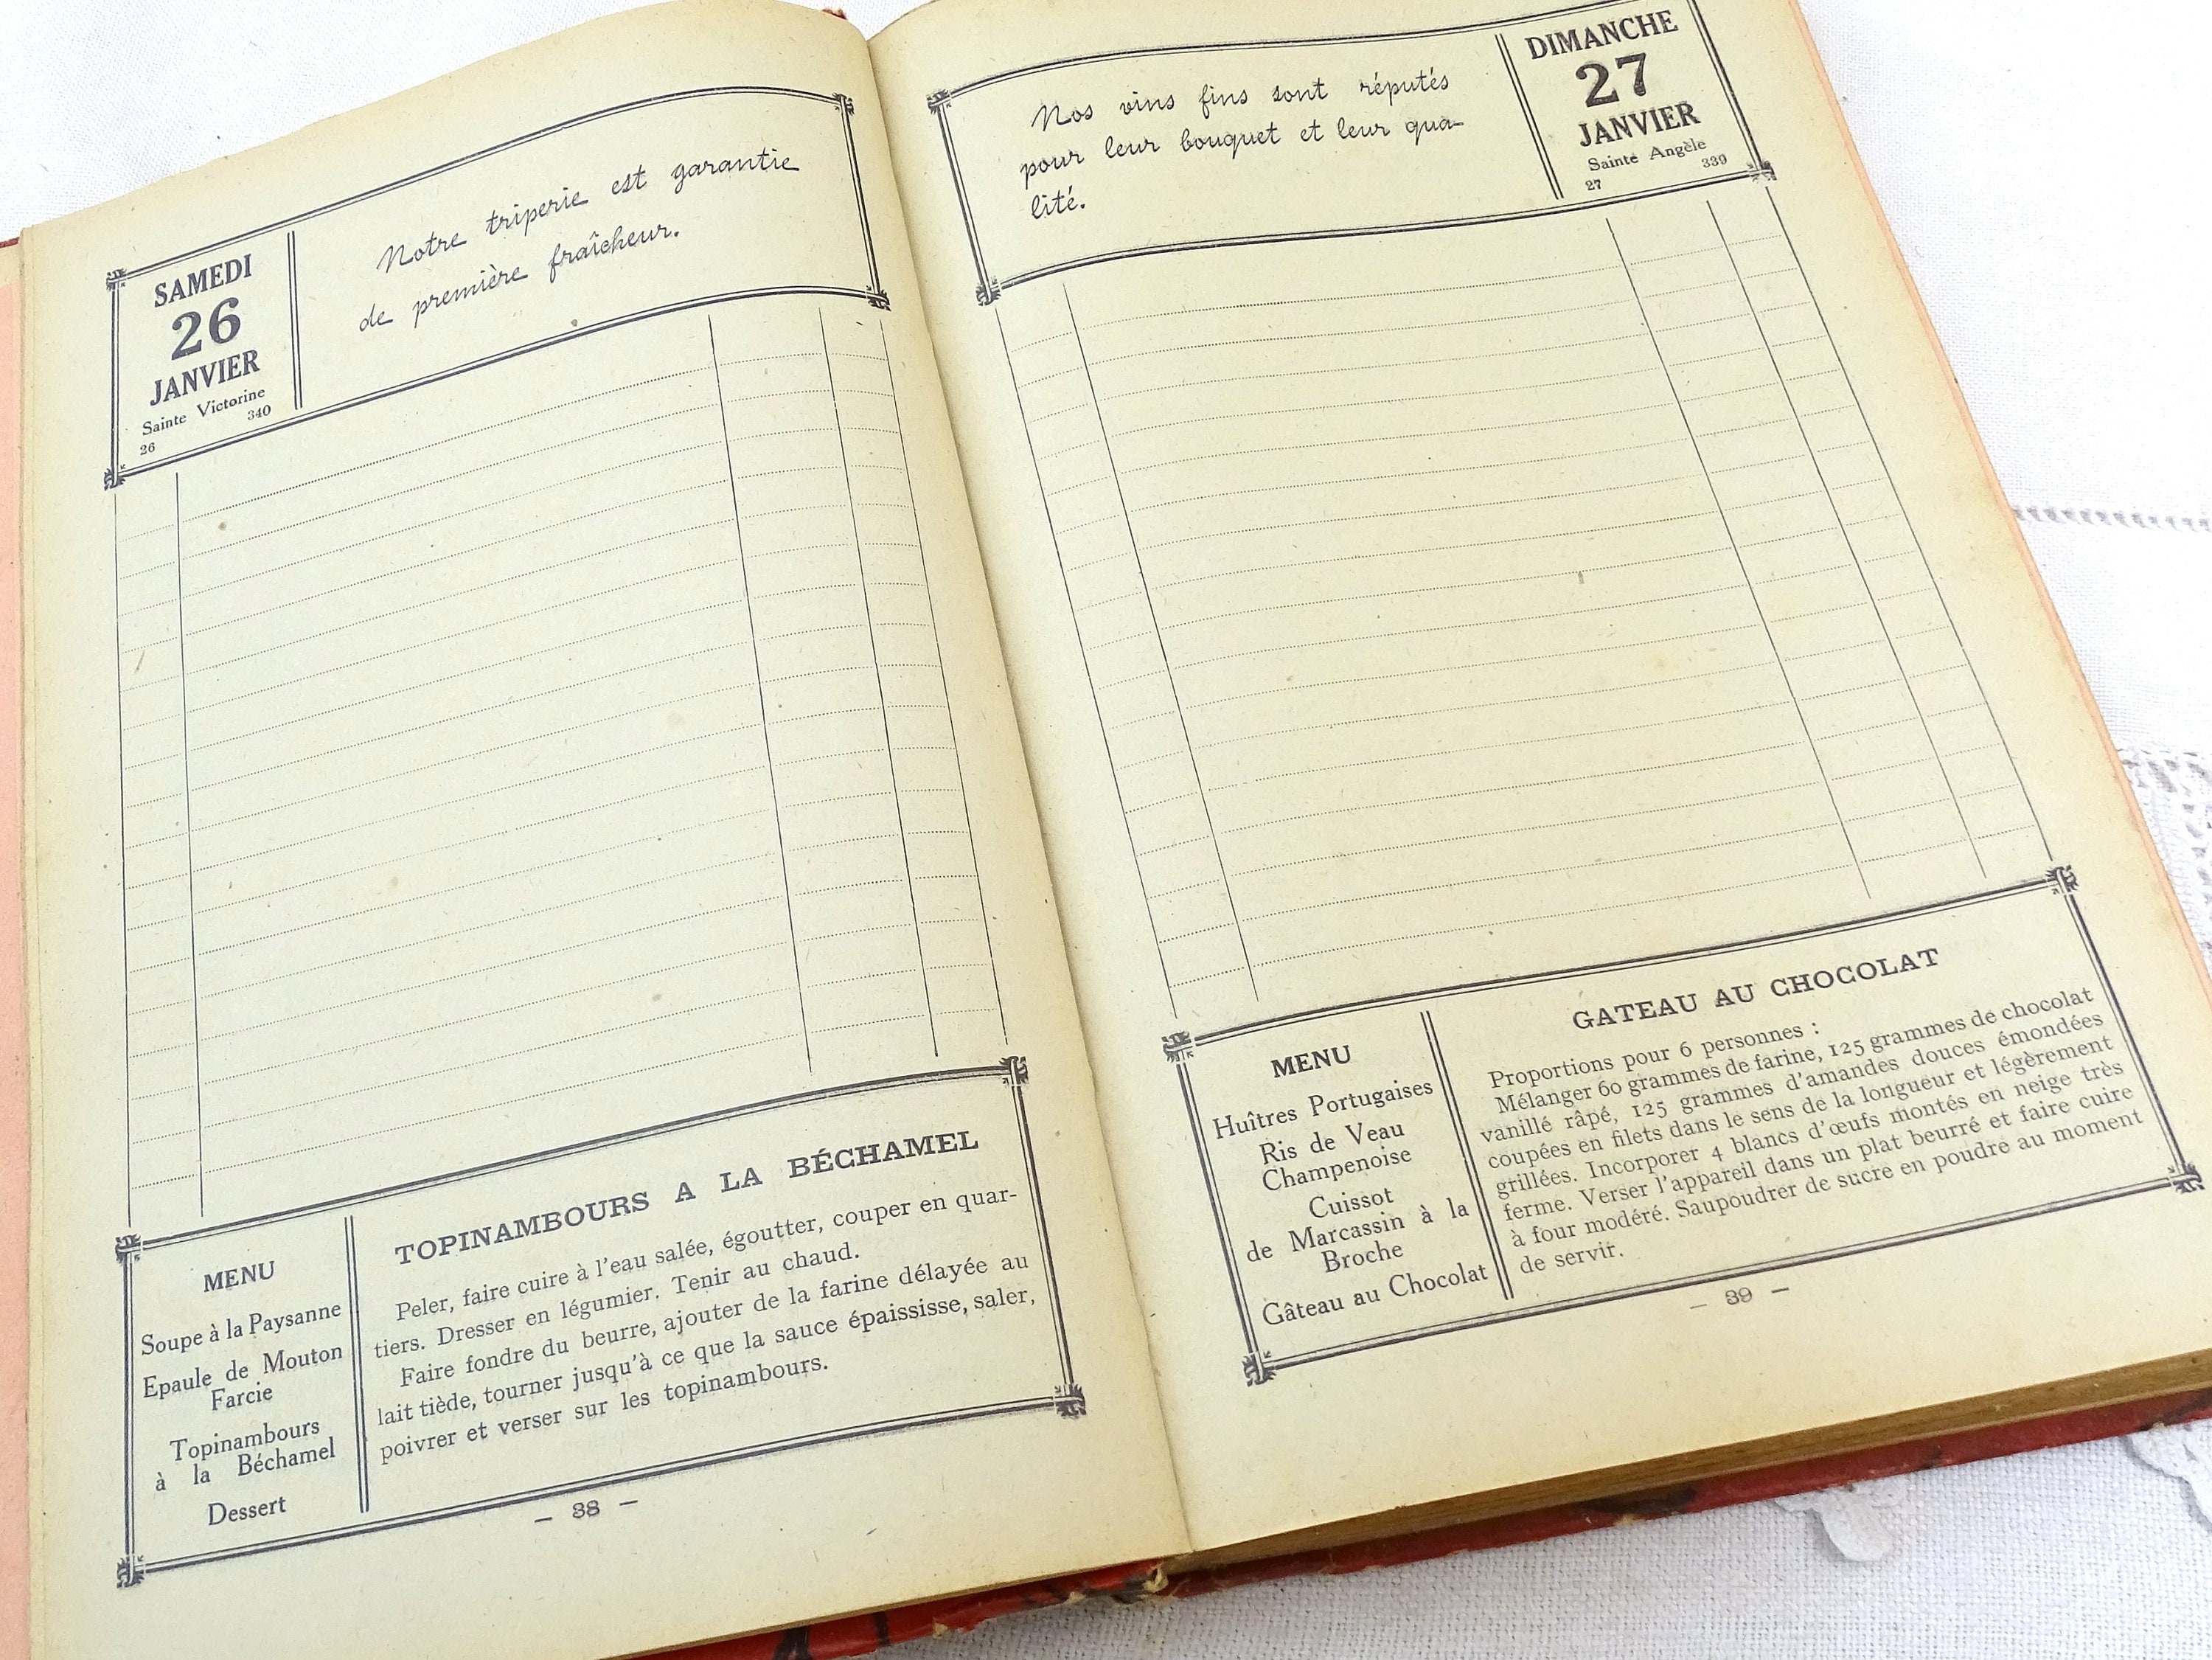 SAMEDI
26
JANVIER
Sainte Victorine
26 340
Notre triperie est garantie
de première fraîcheur.
MENU
Soupe à la Paysanne
Epaule de Mouton
Farcie
Topinambours
à la Béchamel
Dessert
TOPINAMBOURS A LA BÉCHAMEL
Peler, faire cuire à l'eau salée, égoutter, couper en quar-
tiers. Dresser en légumier. Tenir au chaud.
Faire fondre du beurre, ajouter de la farine délayée au
lait tiède, tourner jusqu'à ce que la sauce épaississe, saler,
poivrer et verser sur les topinambours.
— 38 —
Nos vins fins sont réputés
pour leur bouquet et leur qua-
lité.
DIMANCHE
27
JANVIER
Sainte Angèle
27 339
MENU
Huîtres Portugaises
Ris de Veau
Champenoise
Cuissot
de Marcassin à la
Broche
Gâteau au Chocolat
GATEAU AU CHOCOLAT
Proportions pour 6 personnes :
Mélanger 60 grammes de farine, 125 grammes de chocolat
vanillé râpé, 125 grammes d'amandes douces émondées
coupées en filets dans le sens de la longueur et légèrement
grillées. Incorporer 4 blancs d'œufs montés en neige très
ferme. Verser l'appareil dans un plat beurré et faire cuire
à four modéré. Saupoudrer de sucre en poudre au moment
de servir.
— 39 —